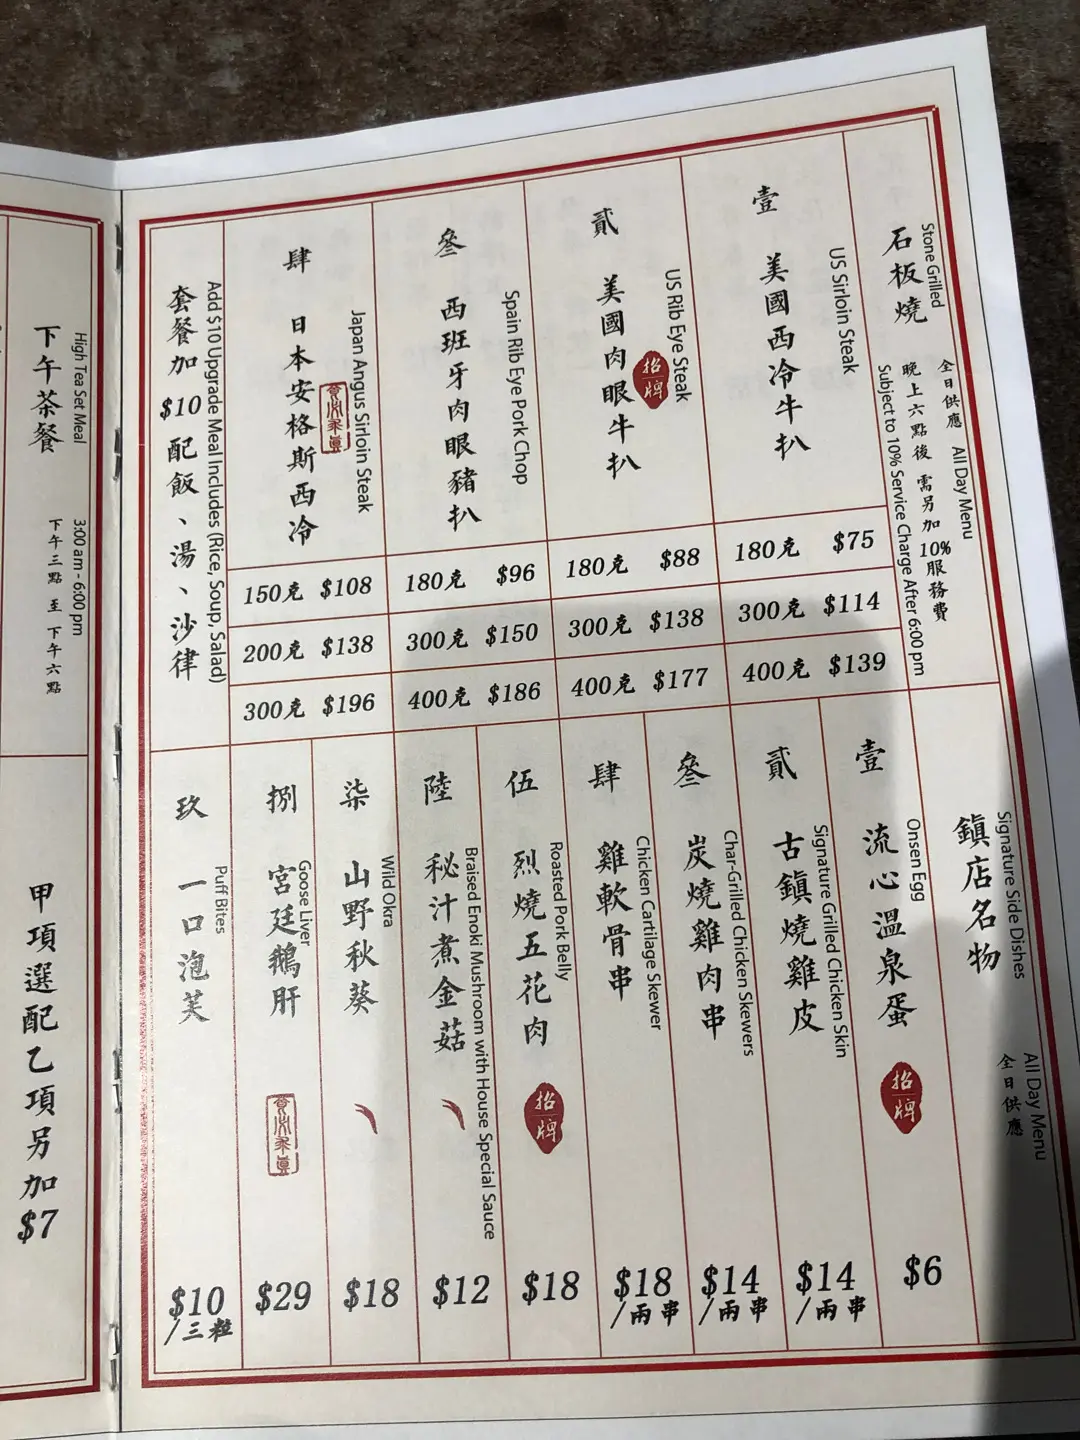 Stone Grilled
石板燒
全日供應 All Day Menu
晚上六點後 需另加 10% 服務費
Subject to 10% Service Charge After 6:00 pm
US Sirloin Steak
壹 美國西冷牛扒
180克 $75
300克 $114
400克 $139
US Rib Eye Steak
貳 美國肉眼牛扒
招牌
180克 $88
300克 $138
400克 $177
Spain Rib Eye Pork Chop
叄 西班牙肉眼豬扒
180克 $96
300克 $150
400克 $186
Japan Angus Sirloin Steak
肆 日本安格斯西冷
150克 $108
200克 $138
300克 $196
Add $10 Upgrade Meal Includes (Rice, Soup, Salad)
套餐加 $10 配飯、湯、沙律
Signature Side Dishes
鎮店名物
All Day Menu
全日供應
Onsen Egg
壹 流心溫泉蛋
招牌
$6
Signature Grilled Chicken Skin
貳 古鎮燒雞皮
$14
/兩串
Char-Grilled Chicken Skewers
叄 炭燒雞肉串
$14
/兩串
Chicken Cartilage Skewer
肆 雞軟骨串
$18
/兩串
Roasted Pork Belly
伍 烈燒五花肉
招牌
$18
Braised Enoki Mushroom with House Special Sauce
陸 秘汁煮金菇
$12
Wild Okra
柒 山野秋葵
$18
Goose Liver
捌 宮廷鵝肝
$29
Puff Bites
玖 一口泡芙
$10
/三粒
High Tea Set Meal
下午茶餐
3:00 am - 6:00 pm
下午三點 至 下午六點
甲項選配乙項另加 $7